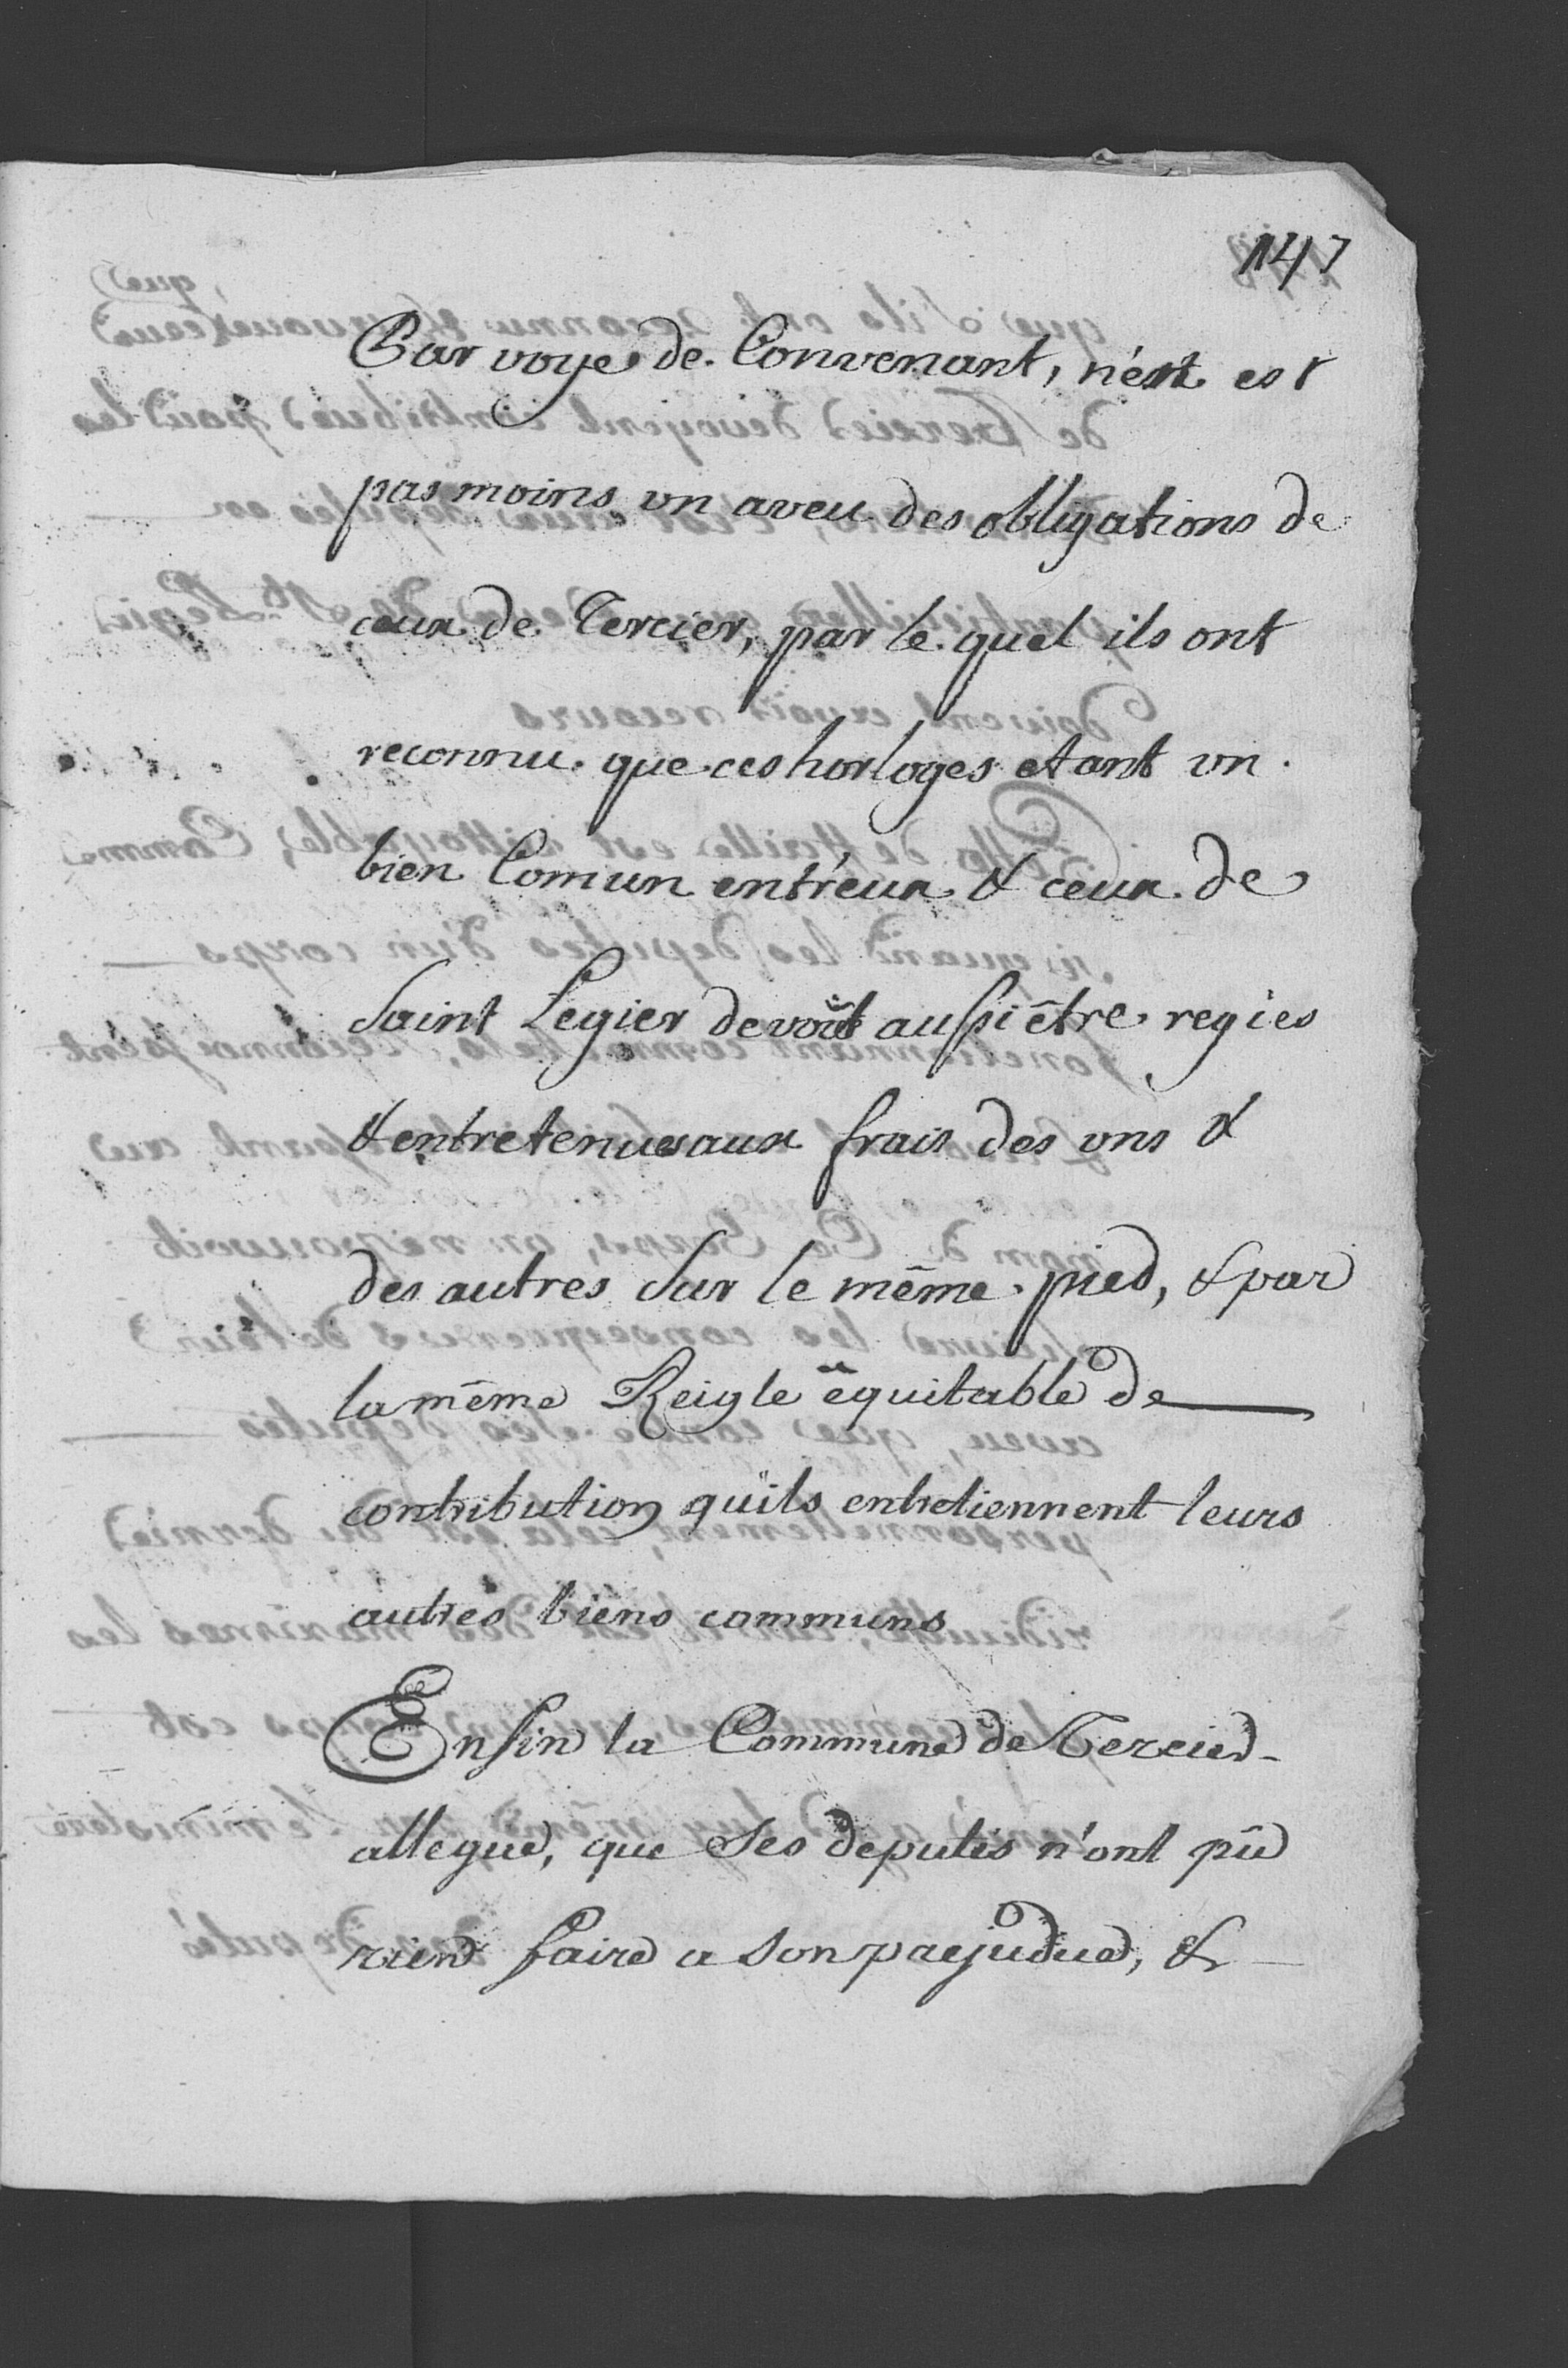 147
Par voye de Convenant, n'ent est
pas moins vn aveu des obligations de
ceux de Tercier, par le quel ils ont
reconnu que ces horloges etant vn
bien Comun entr'eux & ceux de
Saint Legier devoit aussi être regies
& entretenues aux frais des vns &
des autres Sur le même pied, & par
la même Reigle équitable de
contribution qu'ils entretiennent leurs
autres biens communs
Enfin la Commune de Tercier
allegue, que Ses deputés n'ont pû
rien faire a Son praejudice, &